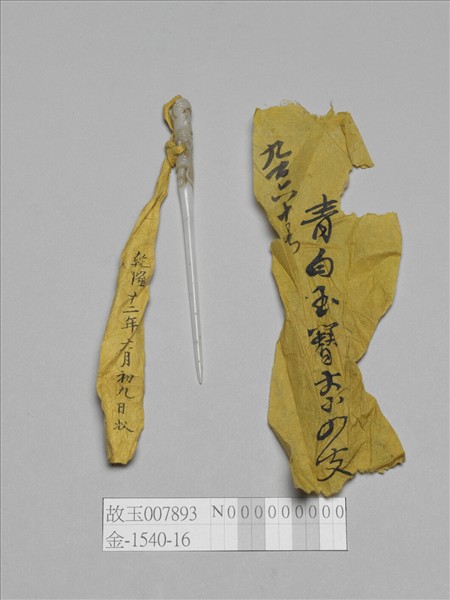 乾隆十二年六月初九日收
九百六十号
青白玉簪大小四支
故玉007893 N000000000
金-1540-16